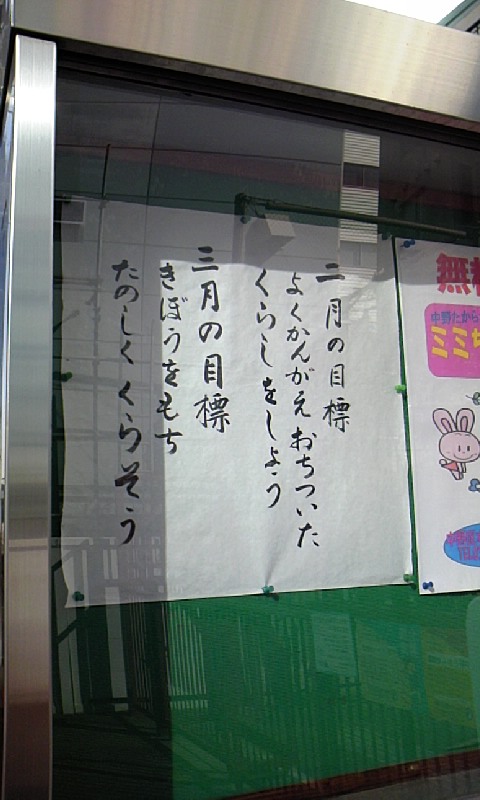 二月の目標
よくかんがえおちついた
くらしをしよう
三月の目標
きぼうをもち
たのしくくらそう
無料
中野たから
ミミ